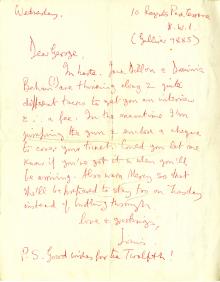 Wednesday.
10 Regents Park Terrace
N.W.1.
(Gulliver 7885)
Dear George
In haste. Jane Dillon & Dominic
Behan(!) are thinking along 2 quite
different lines to get you an interview
& ∴ a fee. In the meantime I'm
jumping the gun & enclose a cheque
to cover your ticket. Could you let me
know if you've got it & when you'll
be arriving. Also warn Mercy so that
she'll be prepared to stay too on Tuesday
instead of hurtling through.
love & greetings,
Louis.
P.S. Good wishes for the Twelfth!